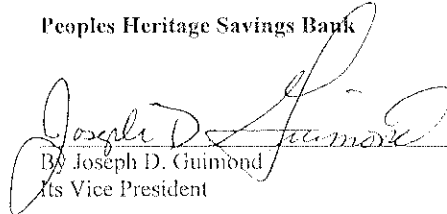 Peoples Heritage Savings Bank
Joseph D. Guimond
By Joseph D. Guimond
Its Vice President